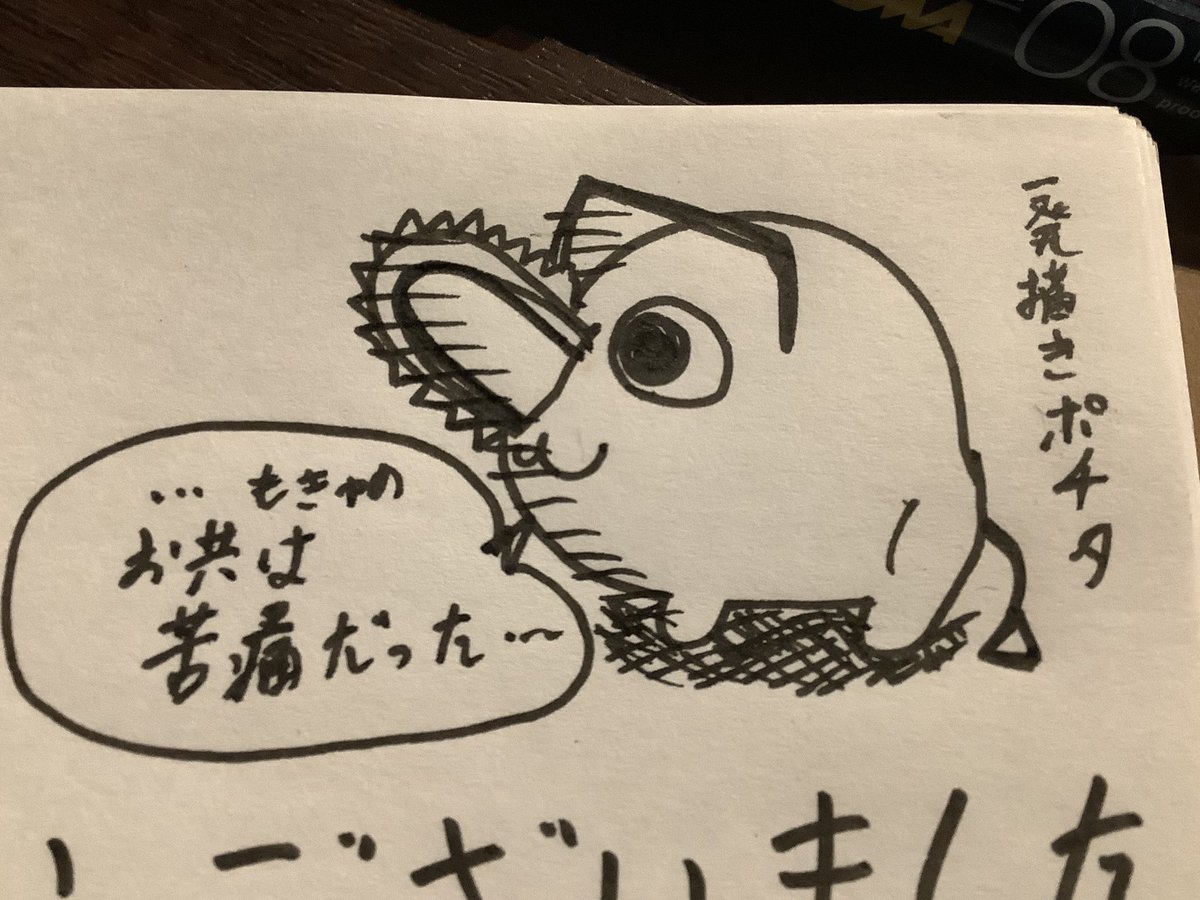 一発描きポチタ
… もきゅの
お共は
苦痛だった…
ございました
08